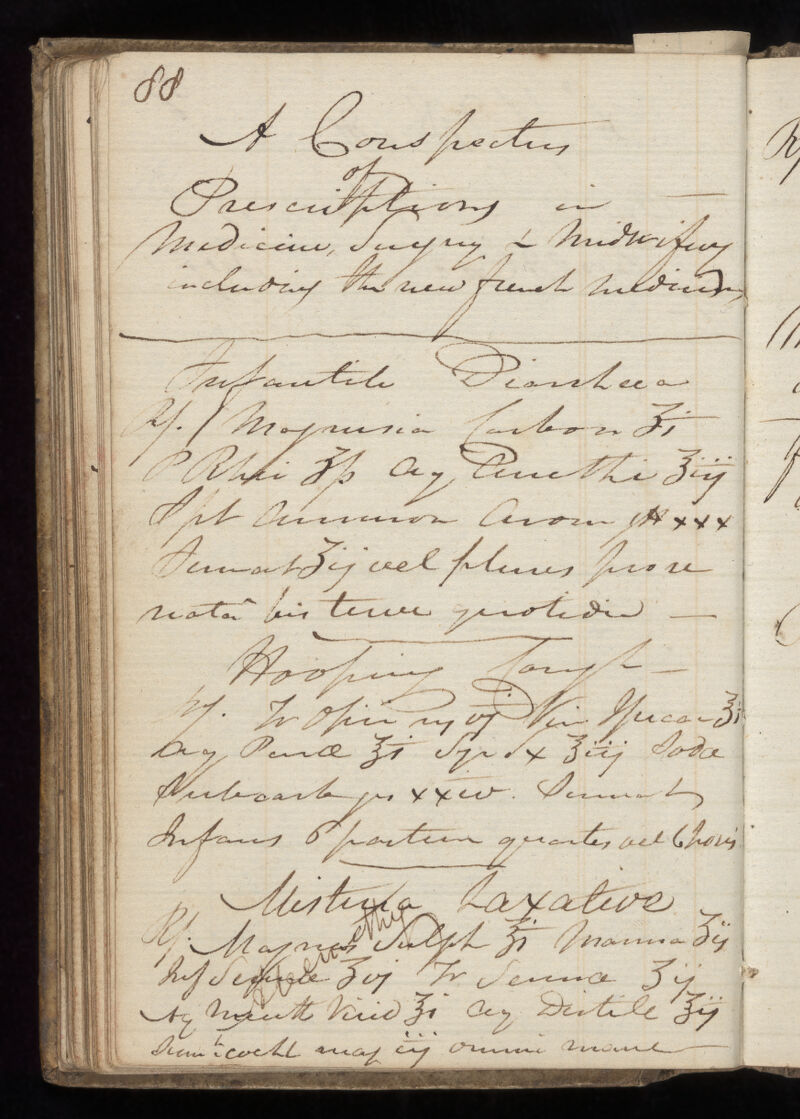 88
A Conspectus
of
Prescriptions in —
Medicine, Surgery & Midwifery
including the new french medicines
Infantile Diarrhœa
Rx. Magnesia Carbon ʒi
P Rhei ʒß Aq Anethi ℥iij
Spt Ammon Arom gtt xxx
Sumat ʒij vel plures pro re
nata bis terve quotidie —
Hooping Cough —
Rx. Tr Opii ♏ vj Vin Ipecac ʒi
Aq Puræ ℥i Syr ʒiij Soda
Subcarb grs xxiv. Sumat
Infans 6 partem quartis vel 6 horis
Mistura Laxative
Rx. Magnes Sulph ℥i Manna ʒij
Inf Sennæ ℥vj Tr Sennæ ʒij
Aq Menth Virid ℥i Aq Distile ℥ij
Sumt cochl mag iij omni mane